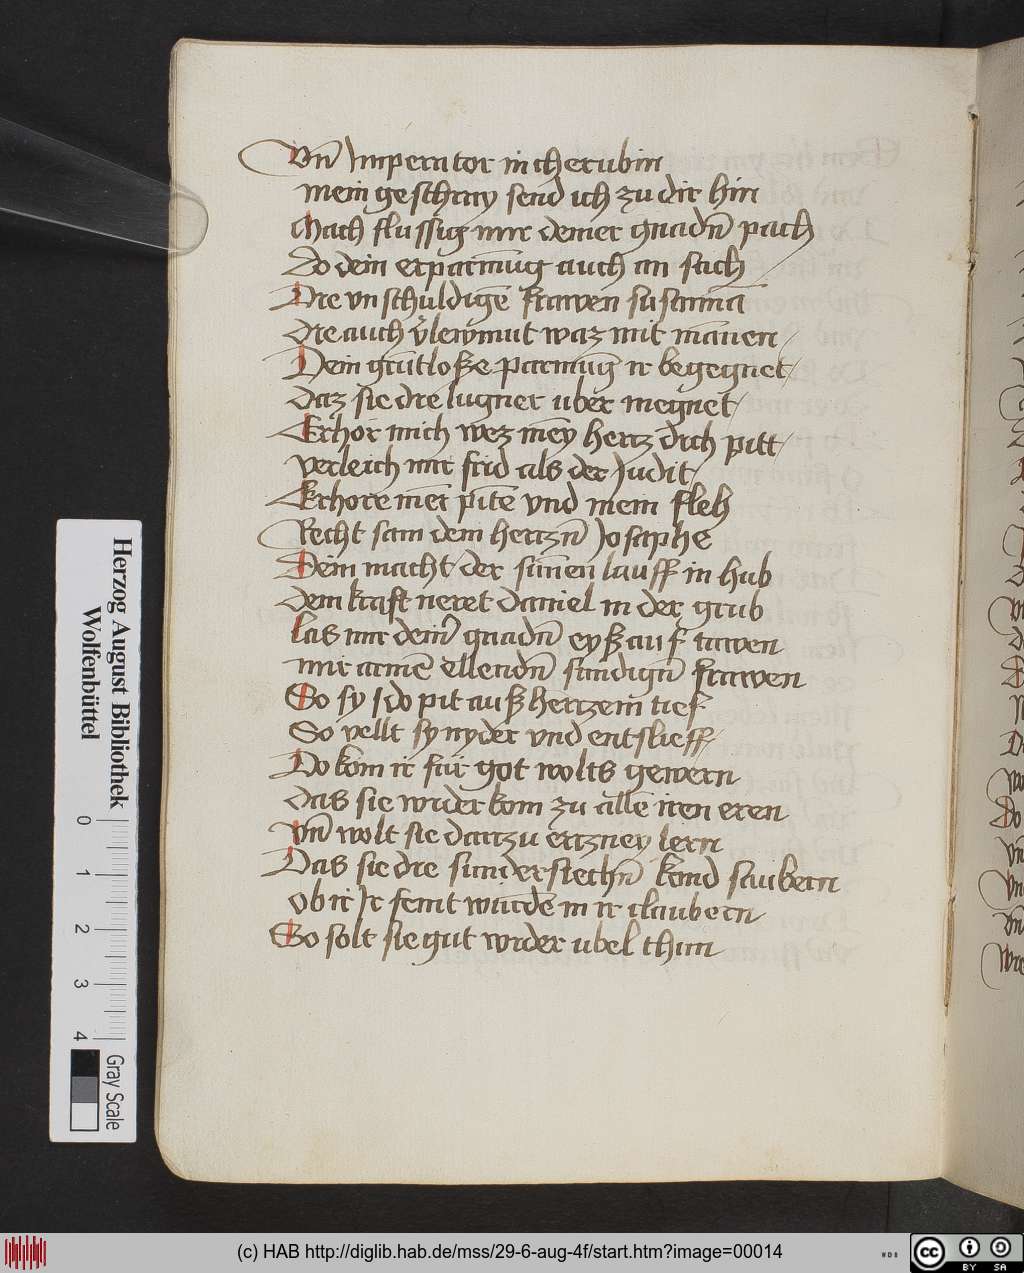 Vnd Imperator in cherubin
mein geschray send ich zu dir hin
Mach flussig mir deiner gnadn̄ pach
Do dein erparmūg auch an sach
Die vnschuldigē frawen susannā
die auch v̄lewmut waz mit mānen
Dein grūtloße parmūg ir begegnet
daz sie die lugner uber megnet
Erhor mich wez mey hertz dich pitt
verleich mir frid als der Judit
Erhore mēr pitē vnd mein fleh
Recht sam dem hertzn̄ Josaphe
Dein macht der sūnen lauff in hub
dein kraft neret daniel in der grub
Las mir deinr gnadn̄ eyß auf tawen
mir armē ellendn̄ sundign̄ frawen
So sy do pit auß hertzein tief
So vellt sy nyder vnd entslieff
Do kom ir für got wolts gewern
das sie wider kom zu alle iren eren
vnd wolt sie dartzu ertzney lern
Das sie die sundersiechn̄ kond saubern
ob ir Ir feint wurdē in ir claubern
So solt sie gut wider ubel thun
Herzog August Bibliothek
Wolfenbüttel
0 1 2 3 4
Gray Scale
(c) HAB http://diglib.hab.de/mss/29-6-aug-4f/start.htm?image=00014
WDB
cc BY SA